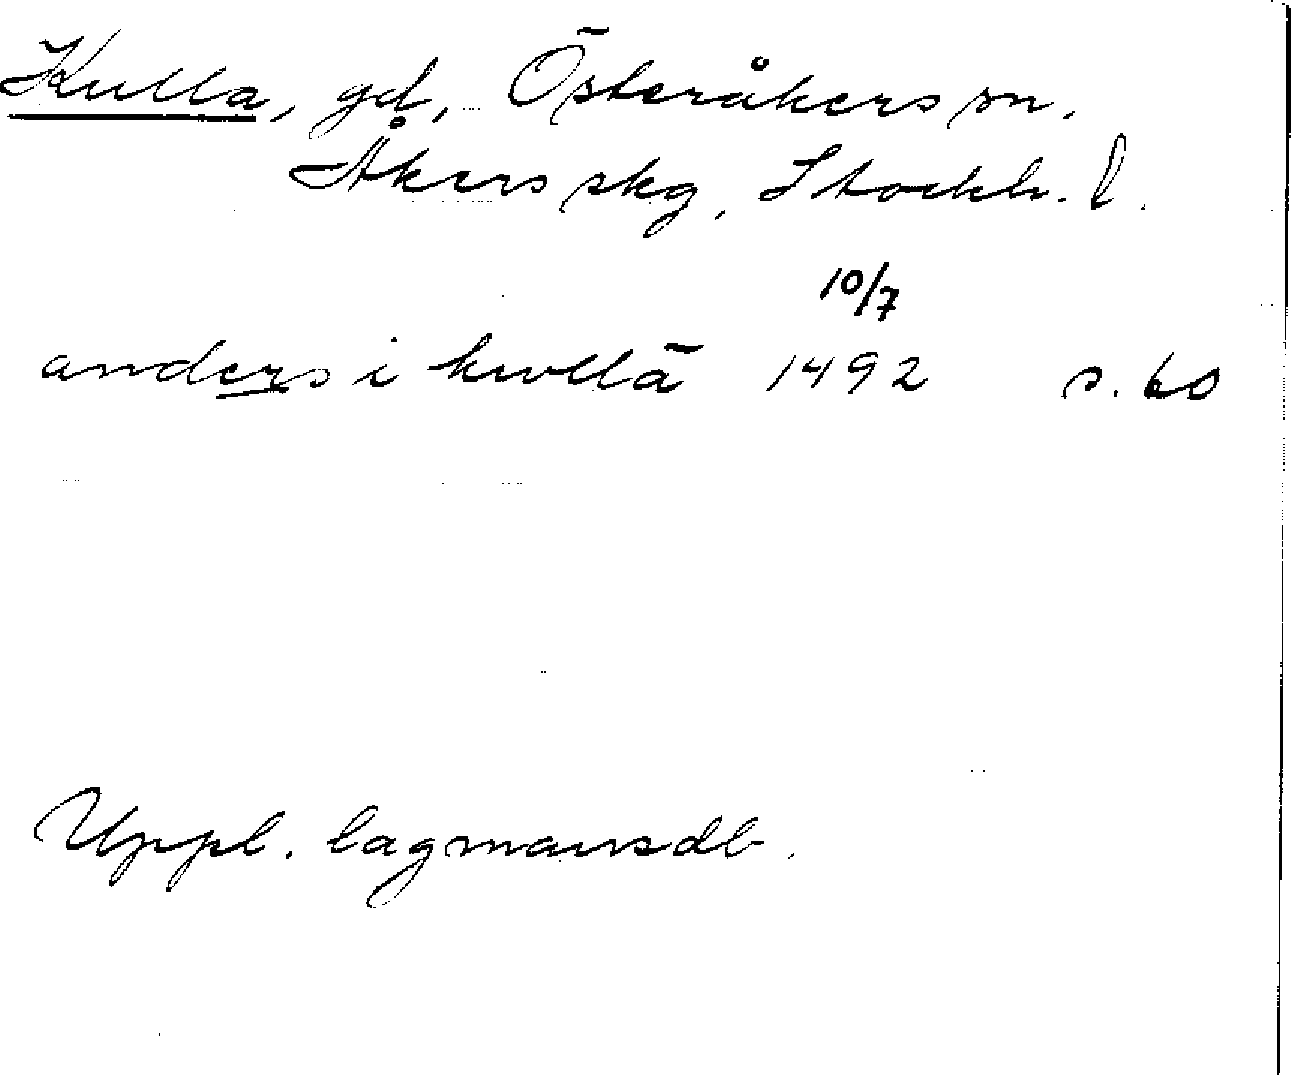 Kulla, gd, Österåkers sn.
Åkers skg, Stockh. l.
10/7
anders i kwllā 1492 s. 60
Uppl. lagmansdb.